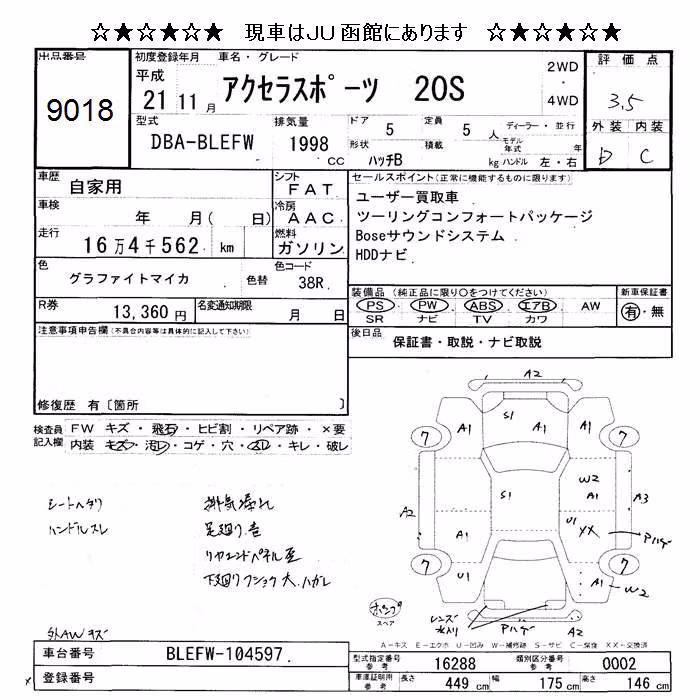 ☆★☆★☆★ 現車はJU函館にあります ☆★☆★☆★
出品番号
9018
初度登録年月 車名・グレード
平成 21 11 月
アクセラスポーツ 20S
2WD
・
4WD
評価点
3.5
外装 内装
D C
型式
DBA-BLEFW
排気量
1998 CC
ドア 5
定員 5 人
ディーラー・並行
モデル年式 年
形状 ハッチB
積載 kg
ハンドル 左・右
車歴 自家用
シフト FAT
車検 年 月( 日)
冷房 AAC
走行 16万4千562 km
燃料 ガソリン
色 グラファイトマイカ 色替
色コード 38R
R券 13,360 円
名変通知期限 月 日
セールスポイント(正常に機能するものに限ります)
ユーザー買取車
ツーリングコンフォートパッケージ
Boseサウンドシステム
HDDナビ
装備品 (純正品に限り○をつけてください)
PS PW ABS エアB AW
SR ナビ TV カワ
新車保証書
有・無
後日品 保証書・取説・ナビ取説
注意事項申告欄(不具合内容等は具体的に記入して下さい)
修復歴 有〔箇所 〕
検査員記入欄
FW キズ・飛石・ヒビ割・リペア跡・×要
内装 キズ・汚レ・コゲ・穴・スレ・キレ・破レ
シートヘタリ
ハンドルスレ
排気漏れ
足廻り.音
リヤエンドパネル歪
下廻りフショク大.ハガレ
外AWキズ
A2
S1
A1
A1
A1
7
7
W2
A1
S1
A2
A3
A1
U1
XX
Pハゲ
7
7
U1
A1
W2
ホシュウ
スペア
レンズ水入り
Pハゲ
A2
A-キズ E-エクボ U-凹み W-補修跡 S-サビ C-腐食 XX-交換済
車台番号 BLEFW-104597
登録番号
x
型式指定番号 参考 16288
類別区分番号 参考 0002
車庫証明所 参考
長さ 449 cm
幅 175 cm
高さ 146 cm